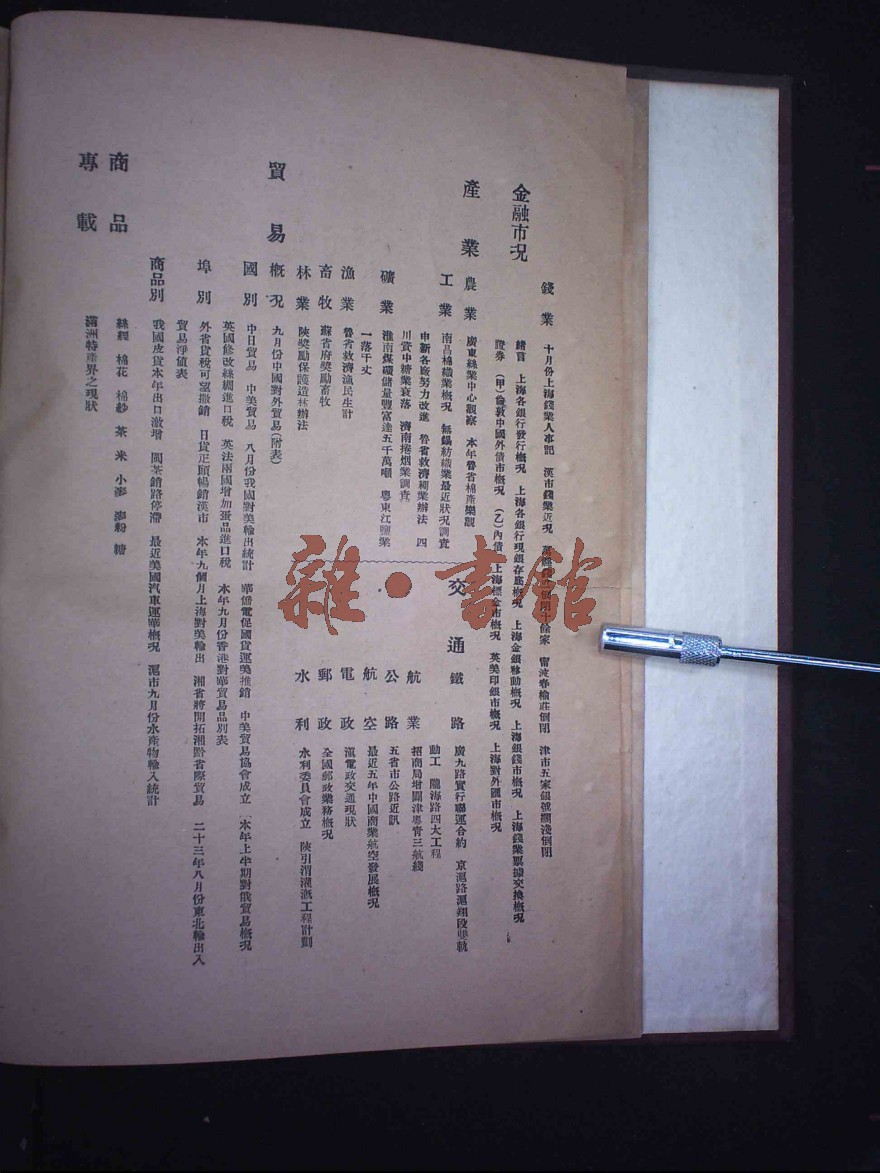 錢業 十月份上海錢業人事記 漢市錢業近況 倒閉十餘家 甯波春榆莊倒閉 津市五家銀號擱淺倒閉
金融市況
緒言 上海各銀行發行概況 上海各銀行現銀存底概況 上海金銀移動概況 上海銀錢市概況 上海錢業票據交換概況
證券 (甲)倫敦中國外債市概況 (乙)內債 上海標金市概況 英美印銀市概況 上海對外匯市概況
產業
農業 廣東絲業中心觀察 本年魯省棉產樂觀
工業 南昌棉織業概況 無錫紡織業最近狀況調查
申新各廠努力改進 魯省救濟綢業辦法 四
川資中糖業衰落 濟南捲烟業調查
礦業 淮南煤礦儲量豐富達五千萬噸 粵東江鹽業
一落千丈
漁業 魯省救濟漁民生計
畜牧 蘇省府獎勵畜牧
林業 陝獎勵保護造林辦法
交通
鐵路 廣九路實行聯運合約 京滬路滬翔段雙軌
動工 隴海路四大工程
航業 招商局增闢津粵青三航綫
公路 五省市公路近訊
航空 最近五年中國商業航空發展概況
電政 滇電政交通現狀
郵政 全國郵政業務概況
水利 水利委員會成立 陝引渭灌溉工程計劃
貿易
概況 九月份中國對外貿易(附表)
國別 中日貿易 中美貿易 八月份我國對美輸出統計 華僑電促國貨運美推銷 中美貿易協會成立 本年上半期對俄貿易概況
英國修改絲綢進口稅 英法兩國增加蛋品進口稅 本年九月份香港對華貿易品別表
埠別 外省貨稅可望撤銷 日貨正頭暢銷漢市 本年九個月上海對美輸出 湘省將開拓湘黔省際貿易 二十三年八月份東北輸出入
貿易淨值表
商品別 我國皮貨本年出口激增 閩茶銷路停滯 最近美國汽車運華概況 滬市九月份水產物輸入統計
商品
絲經 棉花 棉紗 茶 米 小麥 麵粉 糖
專載
滿洲特產界之現狀
雜·書館